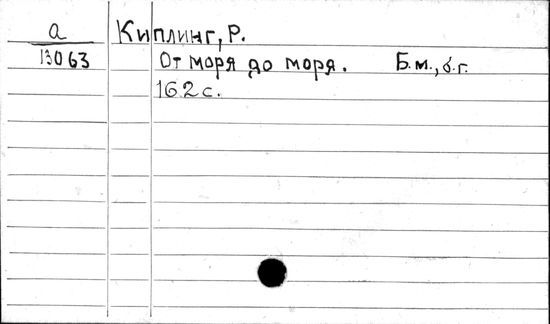 а Киплинг, Р.
13063 От моря до моря. Б.м., б.г.
162 с.